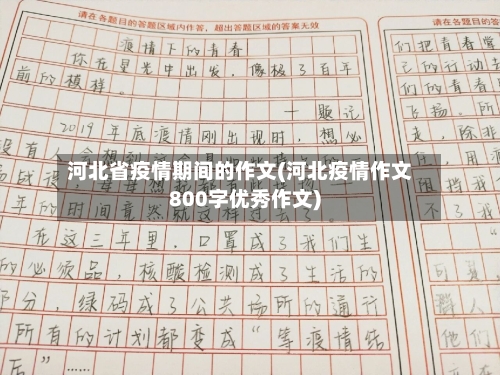 请在各题目的答题区域内作答，超出答题区域的答案无效
疫情下的青春
你在星光中出发，像极了百年
前的模样。
——题记
2019年底疫情刚出现时，想必
河北省疫情期间的作文(河北疫情作文
800字优秀作文)
年的时间竟然就这样过去了
在这三年里，口罩成了我们生
的必须品，核酸检测成了生活的
部分，绿码成了公共场所的通行
所有的计划都变成“等疫情结
后”……
请在各题目的答题
们把青春堂
己的行动去
们的青春
飞扬。所
走，除非
不了我
群人
他们